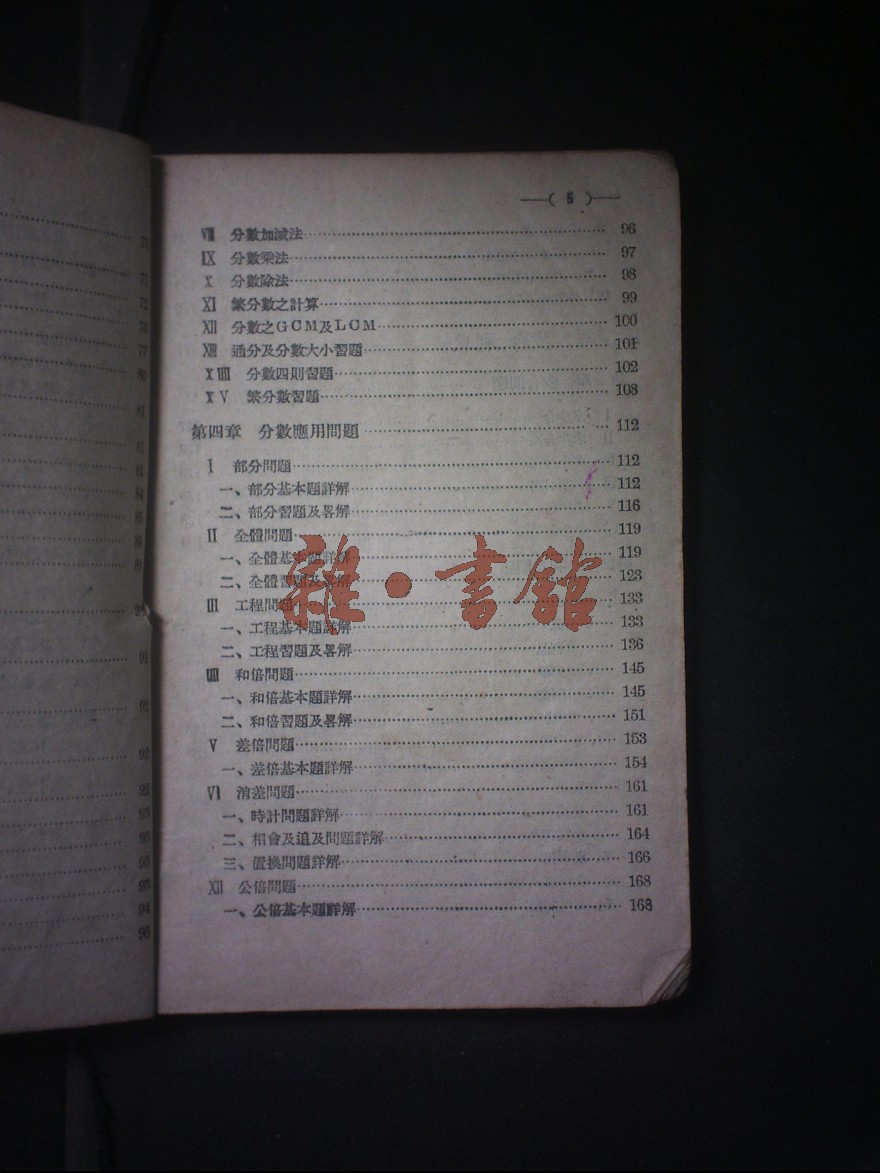 71
71
72
76
77
80
81
81
84
85
86
91
92
92
93
95
94
95
—( 5 )—
Ⅷ 分數加減法 96
Ⅸ 分數乘法 97
Ⅹ 分數除法 98
Ⅺ 繁分數之計算 99
Ⅻ 分數之GCM及LCM 100
XIII 通分及分數大小習題 101
XIIII 分數四則習題 102
XV 繁分數習題 108
第四章 分數應用問題 112
Ⅰ 部分問題 112
一、部分基本題詳解 112
二、部分習題及畧解 116
Ⅱ 全體問題 119
一、全體基本題詳解 119
二、全體習題及畧解 123
Ⅲ 工程問題 133
一、工程基本題詳解 133
二、工程習題及畧解 136
IIII 和倍問題 145
一、和倍基本題詳解 145
二、和倍習題及畧解 151
Ⅴ 差倍問題 153
一、差倍基本題詳解 154
Ⅵ 消差問題 161
一、時計問題詳解 161
二、相會及追及問題詳解 164
三、置換問題詳解 166
Ⅻ 公倍問題 168
一、公倍基本題詳解 168
雜·書館